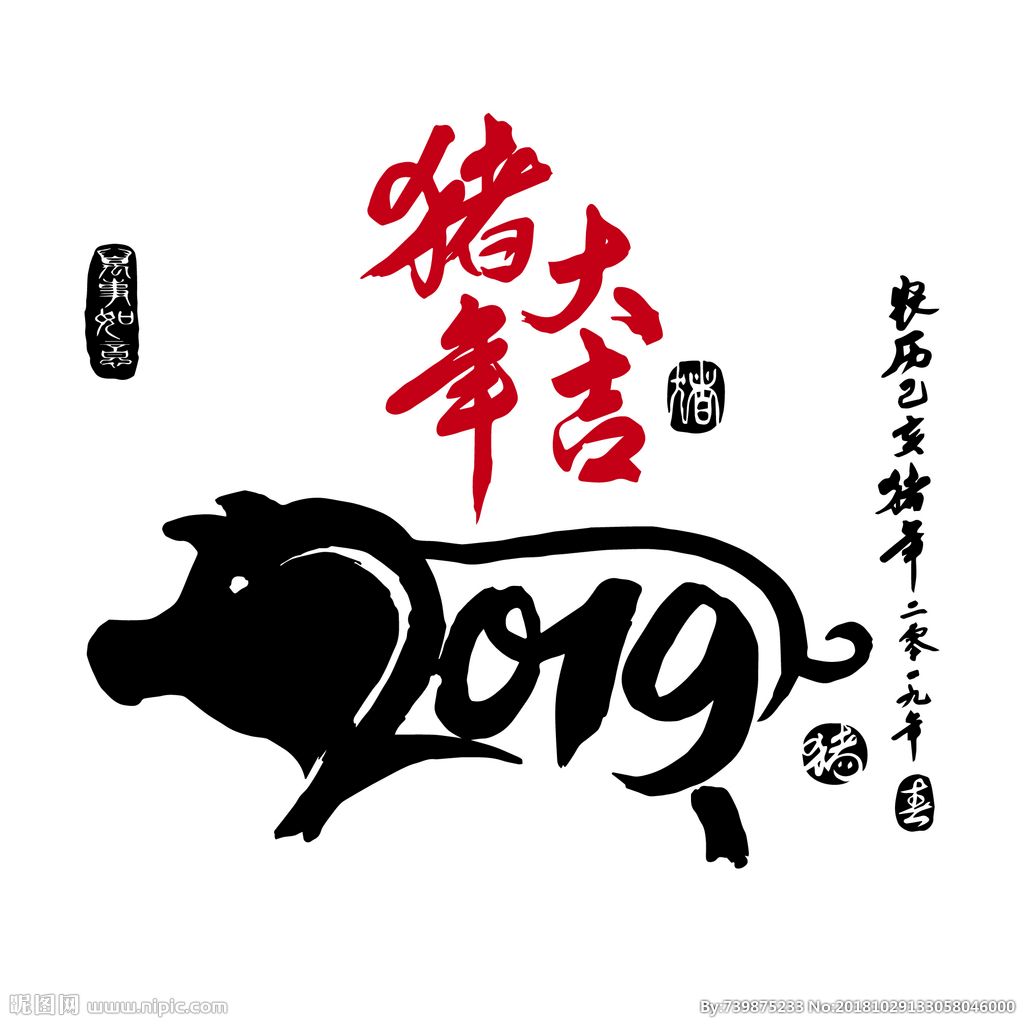 猪年
大吉
萬事如意
猪
农历己亥猪年二零一九年
春
猪
2019
昵图网 www.nipic.com
By:739875233 No:20181029133058046000